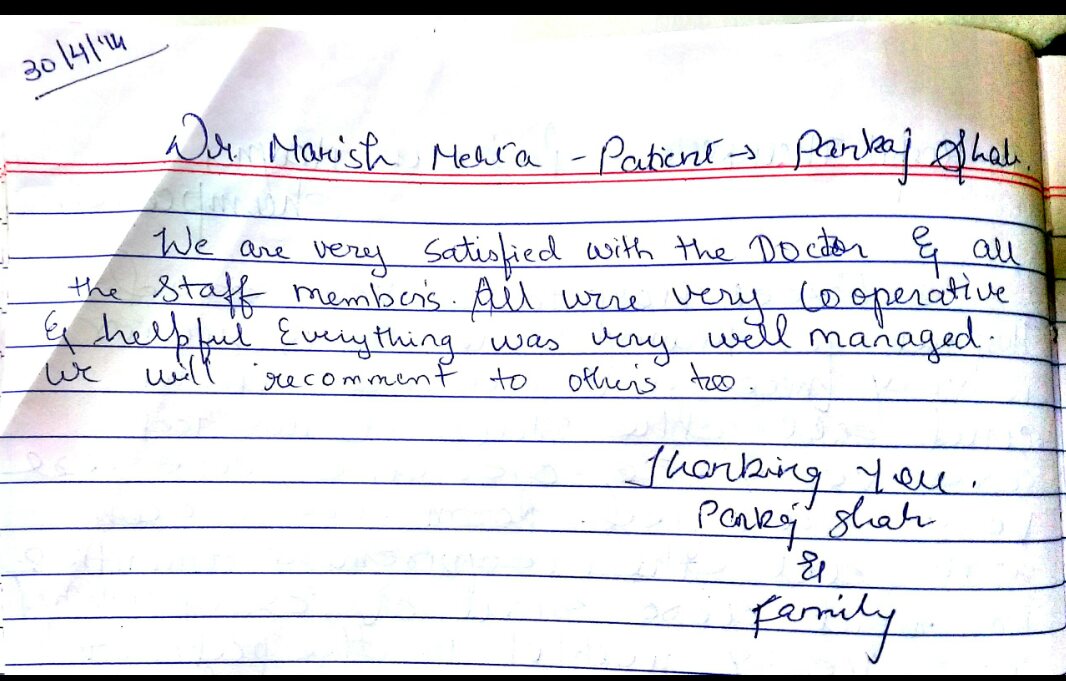 30/4/'14
Dr. Manish Mehta - Patient → Pankaj Shah.
We are very satisfied with the Doctor & all
the staff members. All were very Cooperative
& helpful Everything was very well managed.
We will recomment to others too.
Thanking You.
Pankaj Shah
&
Family